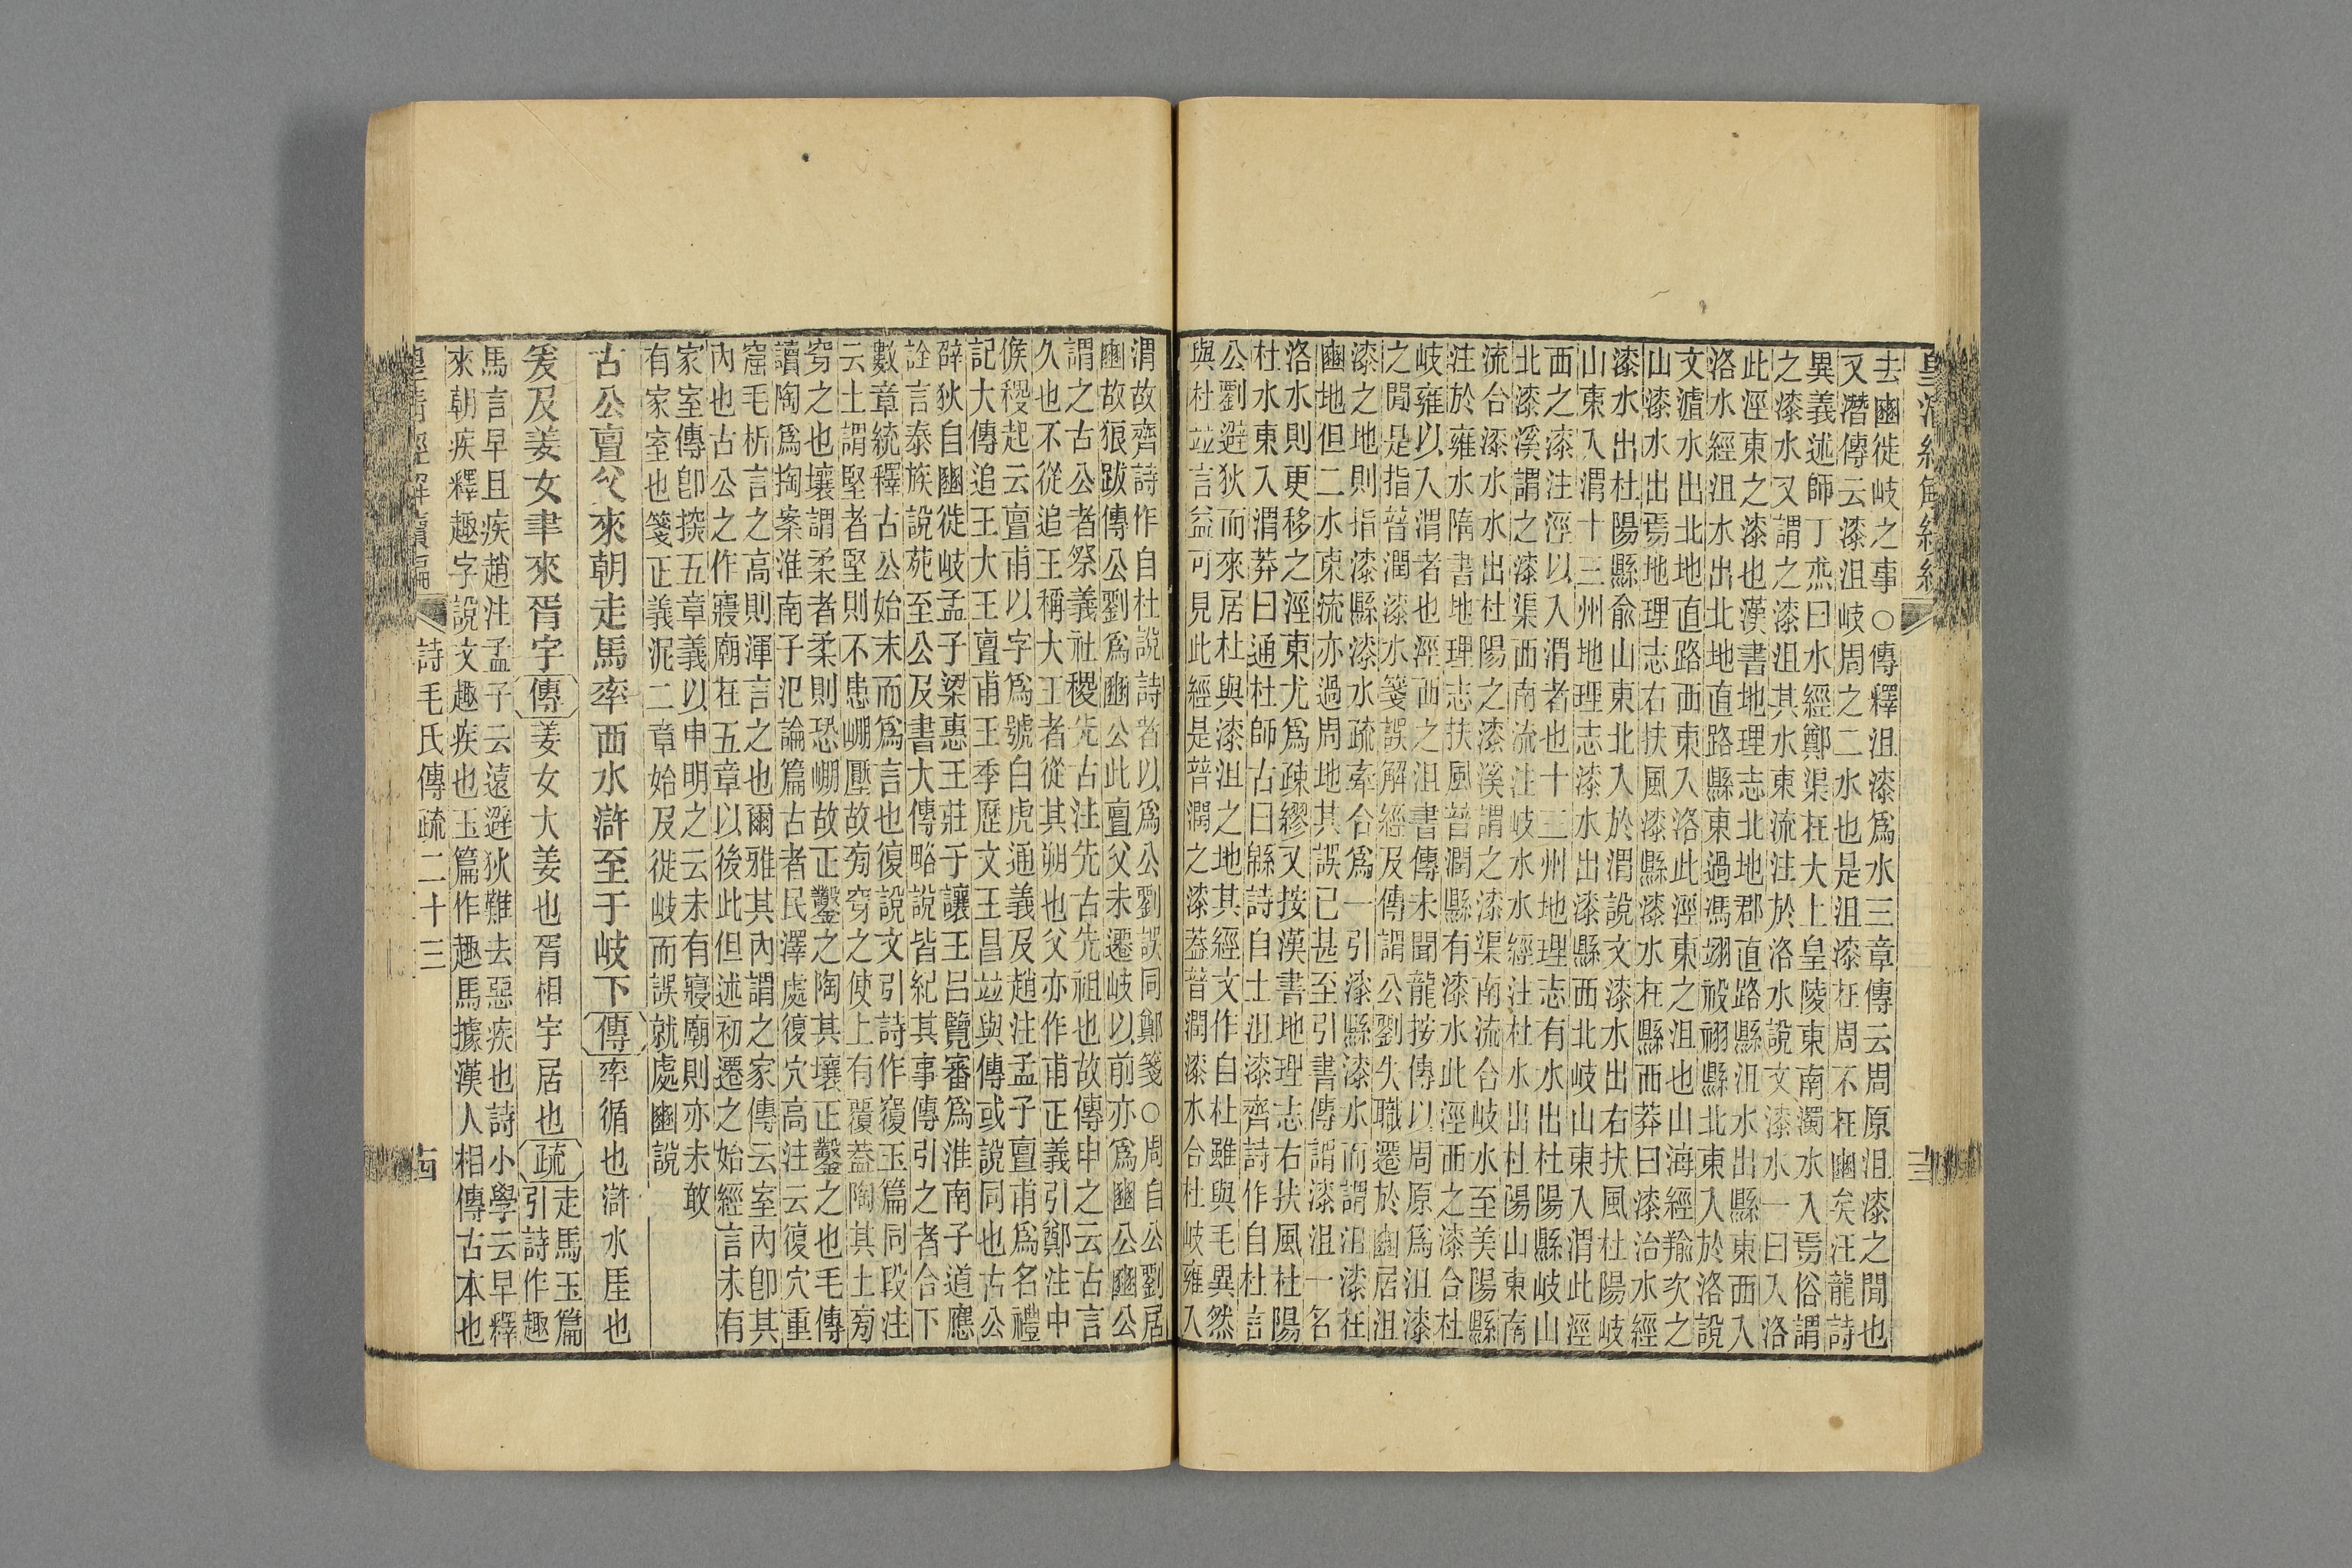 皇清經解續編
去豳徙岐之事○傳釋沮漆爲水三章傳云周原沮漆之閒也
又潛傳云漆沮岐周之二水也是沮漆在周不在豳矣汪龍詩
異義述師丁杰曰水經鄭渠在大上皇陵東南濁水入焉俗謂
之漆水又謂之漆沮其水東流注於洛水說文漆水一曰入洛
此涇東之漆也漢書地理志北地郡直路縣沮水出縣東西入
洛水經沮水出北地直路縣東過馮翊祋祤縣北東入於洛說
文瀘水出北地直路西東入洛此涇東之沮也山海經羭次之
山漆水出焉地理志右扶風漆縣漆水在縣西莽曰漆治水經
漆水出杜陽縣俞山東北入於渭說文漆水出右扶風杜陽岐
山東入渭十三州地理志漆水出漆縣西北岐山東入渭此涇
西之漆注涇以入渭者也十三州地理志有水出杜陽縣岐山
北漆溪謂之漆渠西南流注岐水水經注杜水出杜陽山東南
流合漆水水出杜陽之漆溪謂之漆渠南流合岐水至美陽縣
注於雍水隋書地理志扶風普潤縣有漆水此涇西之漆合杜
岐雍以入渭者也涇西之沮書傳未聞龍按傳以周原爲沮漆
之閒是指普潤漆水箋誤解經及傳謂公劉失職遷於豳居沮
漆之地則指漆縣漆水疏牽合爲一引漆縣漆水而謂沮漆在
豳地但二水東流亦過周地其誤已甚至引書傳謂漆沮一名
洛水則更移之涇東尤爲疎繆又按漢書地理志右扶風杜陽
杜水東入渭莽曰通杜師古曰緜詩自土沮漆齊詩作自杜言
公劉避狄而來居杜與漆沮之地其經文作自杜雖與毛異然
與杜竝言益可見此經是普潤之漆葢普潤漆水合杜岐雍入
渭故齊詩作自杜說詩者以爲公劉誤同鄭箋○周自公劉居
豳故狼跋傳公劉爲豳公此亶父未遷岐以前亦爲豳公豳公
謂之古公者祭義社稷先古注先古先祖也故傳申之云古言
久也不從追王稱大王者從其朔也父亦作甫正義引鄭注中
候稷起云亶甫以字爲號白虎通義及趙注孟子亶甫爲名禮
記大傳追王大王亶甫王季歷文王昌竝與傳或說同也古公
辟狄自豳徙岐孟子梁惠王莊子讓王呂覽審爲淮南子道應
詮言泰族說苑至公及書大傳略說皆紀其事傳引之者合下
數章統釋古公始末而爲言也復說文引詩作𥨍玉篇同段注
云土謂堅者堅則不患崩壓故旁穿之使上有覆葢陶其土旁
穿之也壤謂柔者柔則恐崩故正鑿之陶其壤正鑿之也毛傳
讀陶爲掏案淮南子氾論篇古者民澤處復穴高注云復穴重
窟毛析言之高則渾言之也爾雅其內謂之家傳云室內卽其
內也古公之作寢廟在五章以後此但述初遷之始經言未有
家室傳卽探五章義以申明之云未有寢廟則亦未敢
有家室也箋正義泥二章始及徙岐而誤就處豳說
古公亶父來朝走馬率西水滸至于岐下傳率循也滸水厓也
爰及姜女聿來胥宇傳姜女大姜也胥相宇居也疏走馬玉篇
引詩作趣
馬言早且疾趙注孟子云遠避狄難去惡疾也詩小學云早釋
來朝疾釋趣字說文趣疾也玉篇作趣馬據漢人相傳古本也
皇清經解續編
詩毛氏傳疏二十三